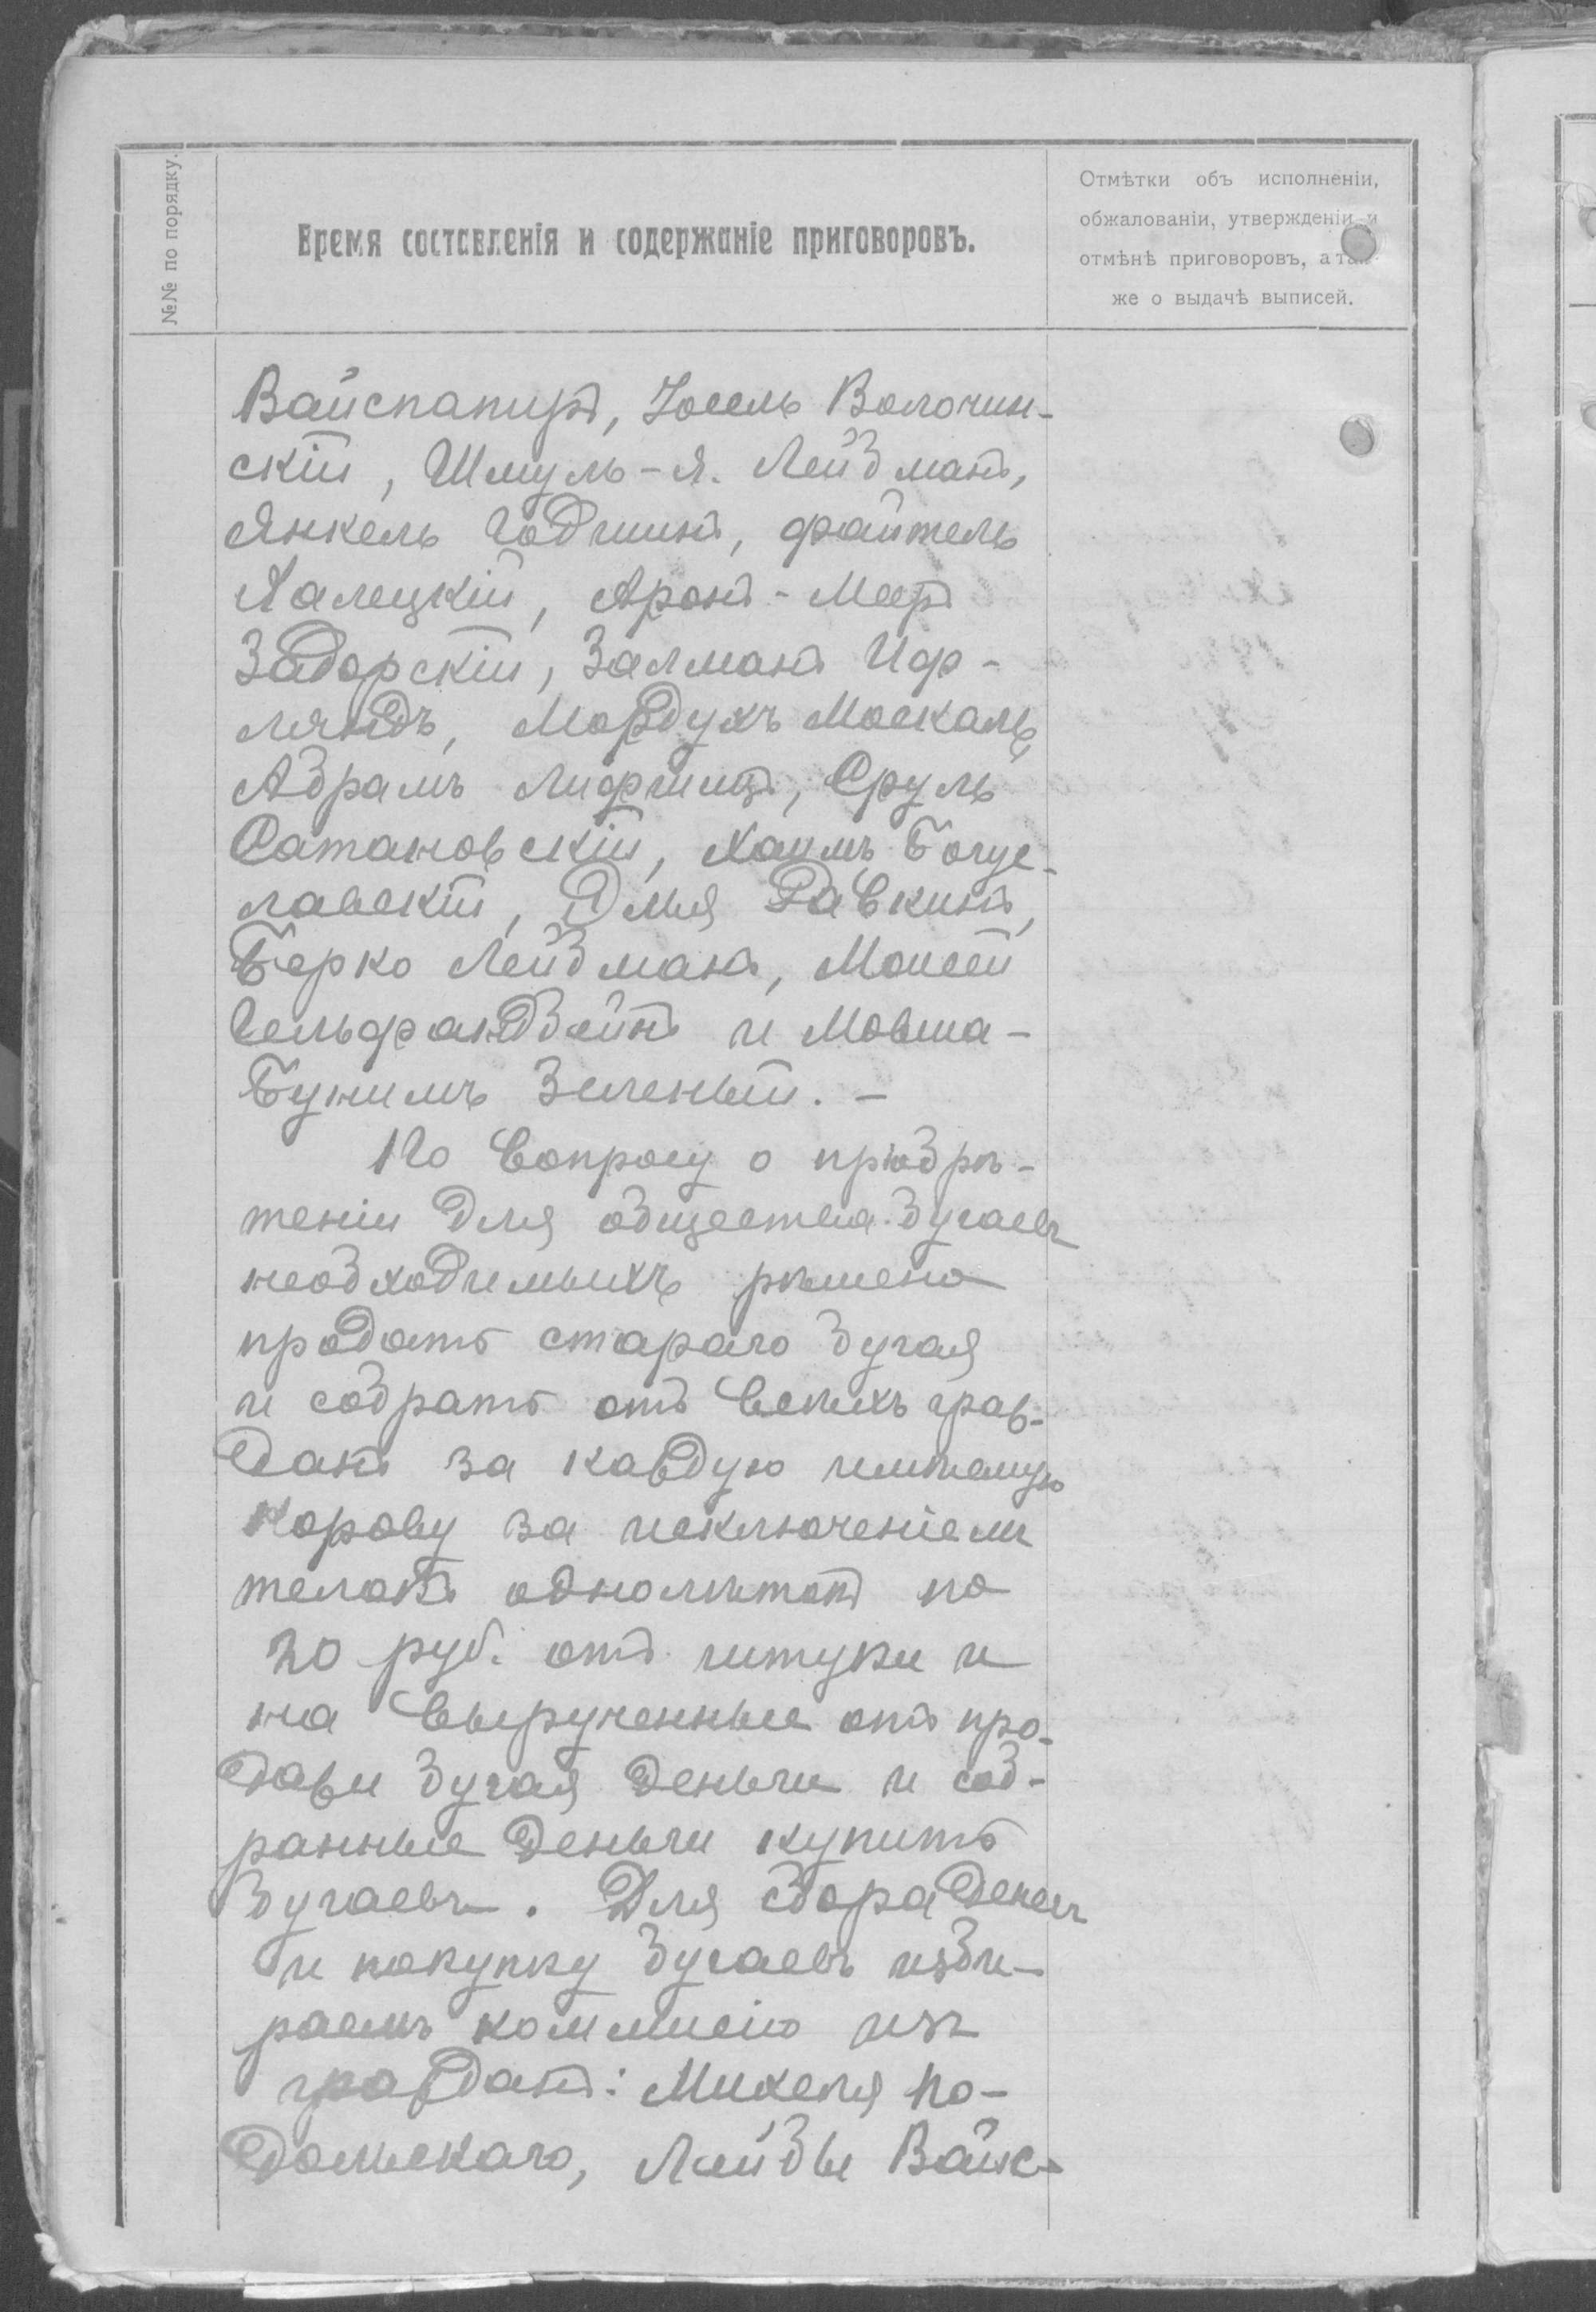 №№ по порядку.
Время составленія и содержаніе приговоровъ.
Отмѣтки объ исполненіи,
обжалованіи, утвержденіи и
отмѣнѣ приговоровъ, а так-
же о выдачѣ выписей.
Вайспапиръ, Іосель Волочин-
скій, Шмуль-Я. Лейбманъ,
Янкель Годминъ, Файтель
Палецкій, Аронъ-Меер
Заборскій, Залманъ Иф-
ляндъ, Мордухъ Москаль,
Абрамъ Лифшиц, Сруль
Сатановскій, Хаимъ Богус-
лавскій, Эмия Равкинъ,
Берко Лейбманъ, Моисей
Гельфандбейнъ и Мовша-
Бунимъ Зеленый. -
По вопросу о пріобрѣ-
теніи для общества бугаевъ
необходимыхъ рѣшено
продать стараго бугая
и собрать отъ всѣхъ граж-
данъ за каждую имѣемую
корову за исключеніемъ
телятъ однолѣтокъ по
20 руб. отъ штуки и
на вырученные отъ про-
дажи бугая деньги и соб-
ранные деньги купить
бугаевъ. Для сбора денегъ
и покупку бугаевъ изби-
раемъ коммисію изъ
гражданъ: Михеля По-
дольскаго, Лейбы Вайс-